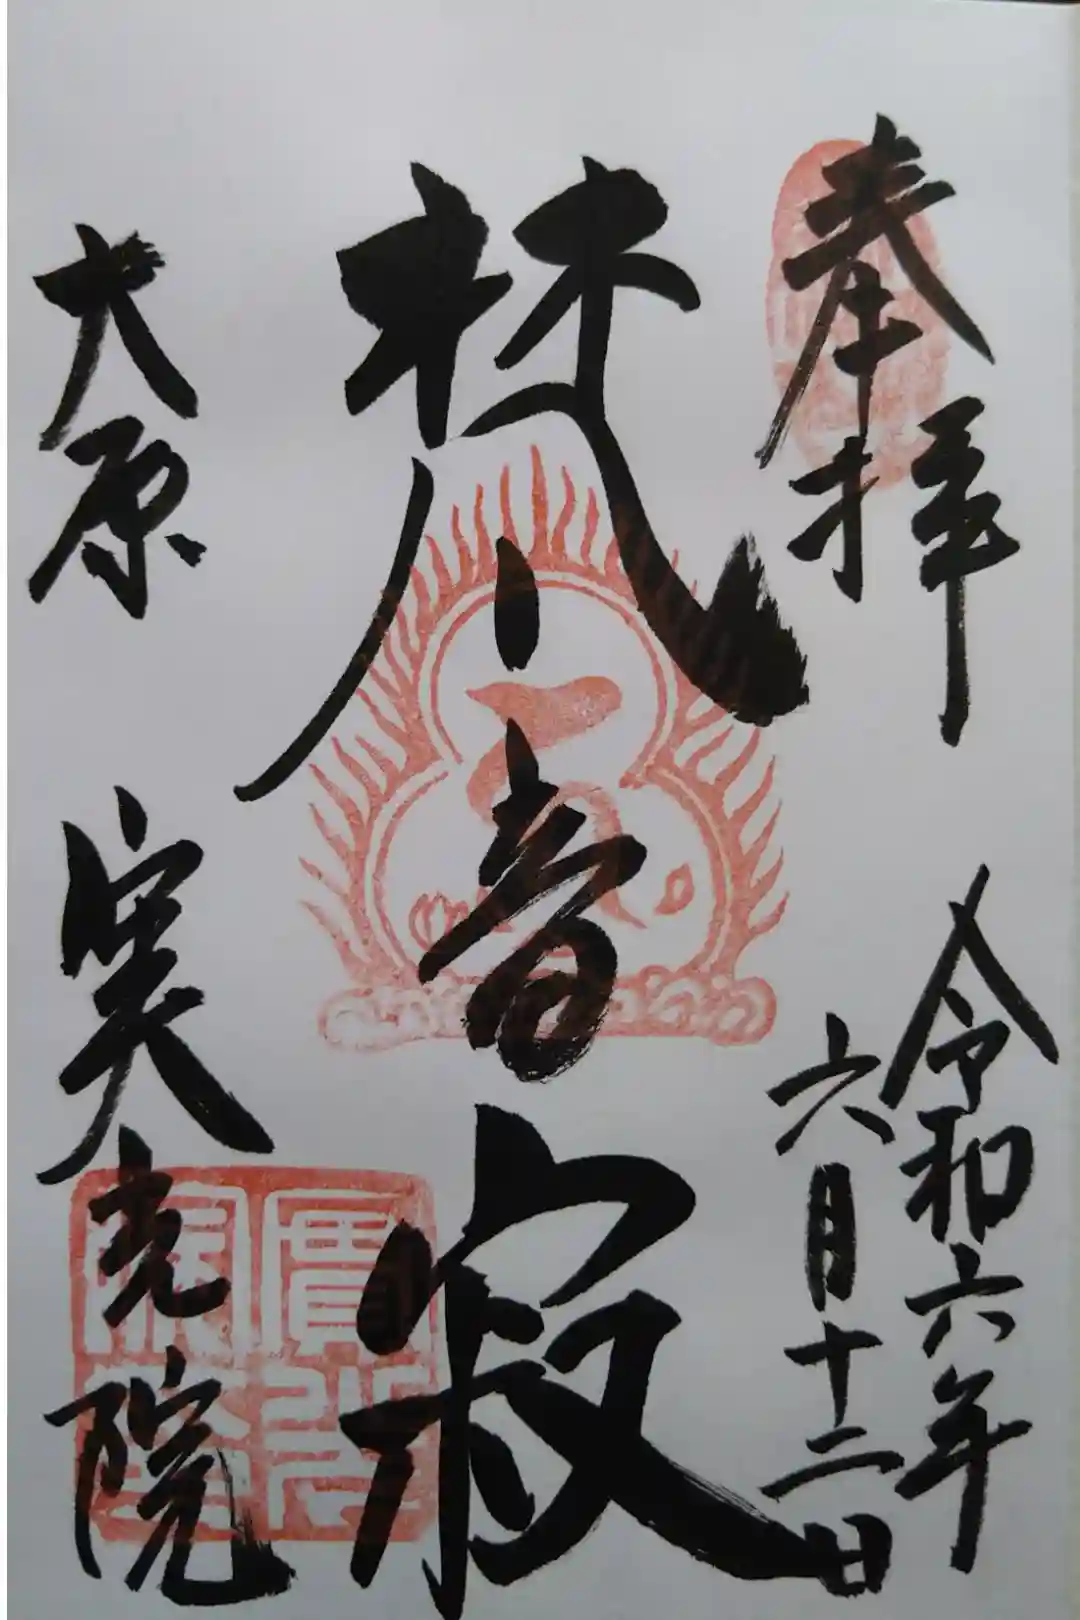 奉拝
令和六年
六月十二日
梵音寂
大原
実光院